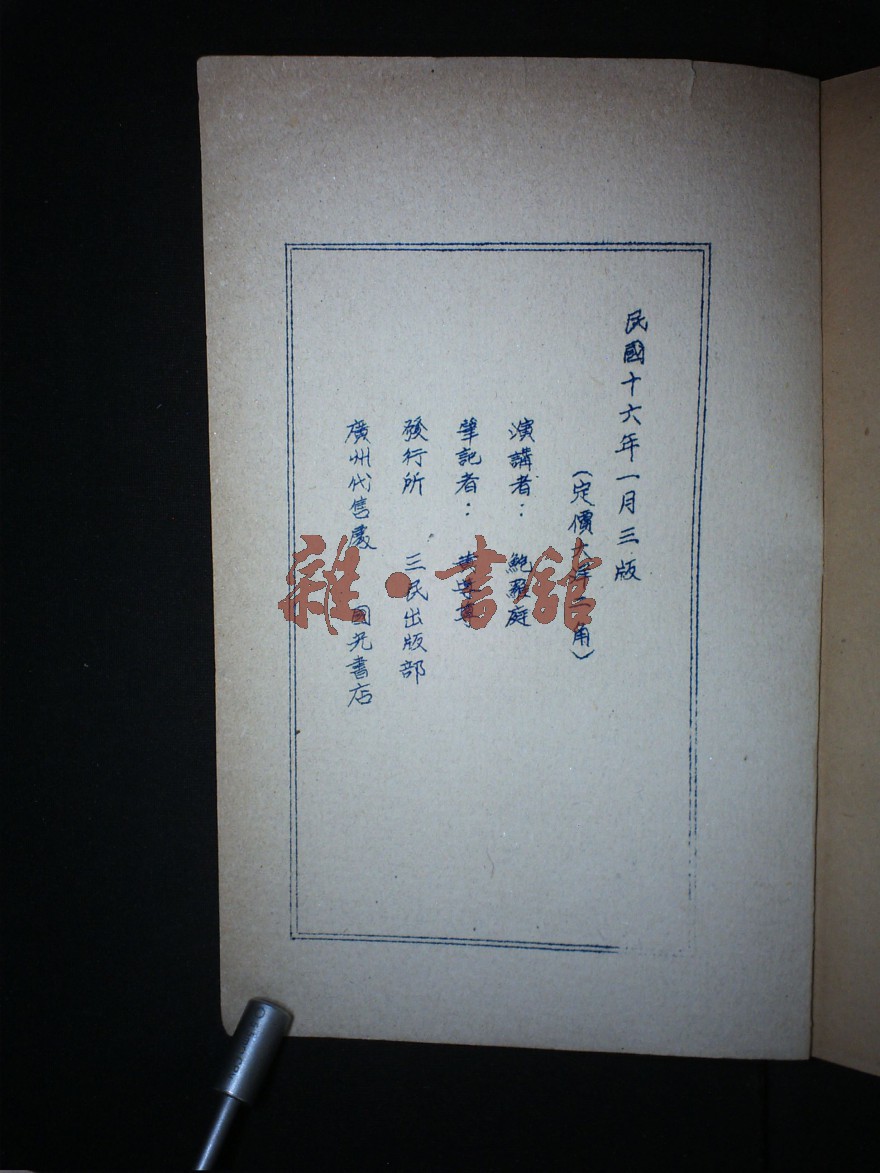 民國十六年一月三版
(定價大洋二角)
演講者： 鮑羅庭
筆記者：
發行所 三民出版部
廣州代售處 國光書店
雜·書舘